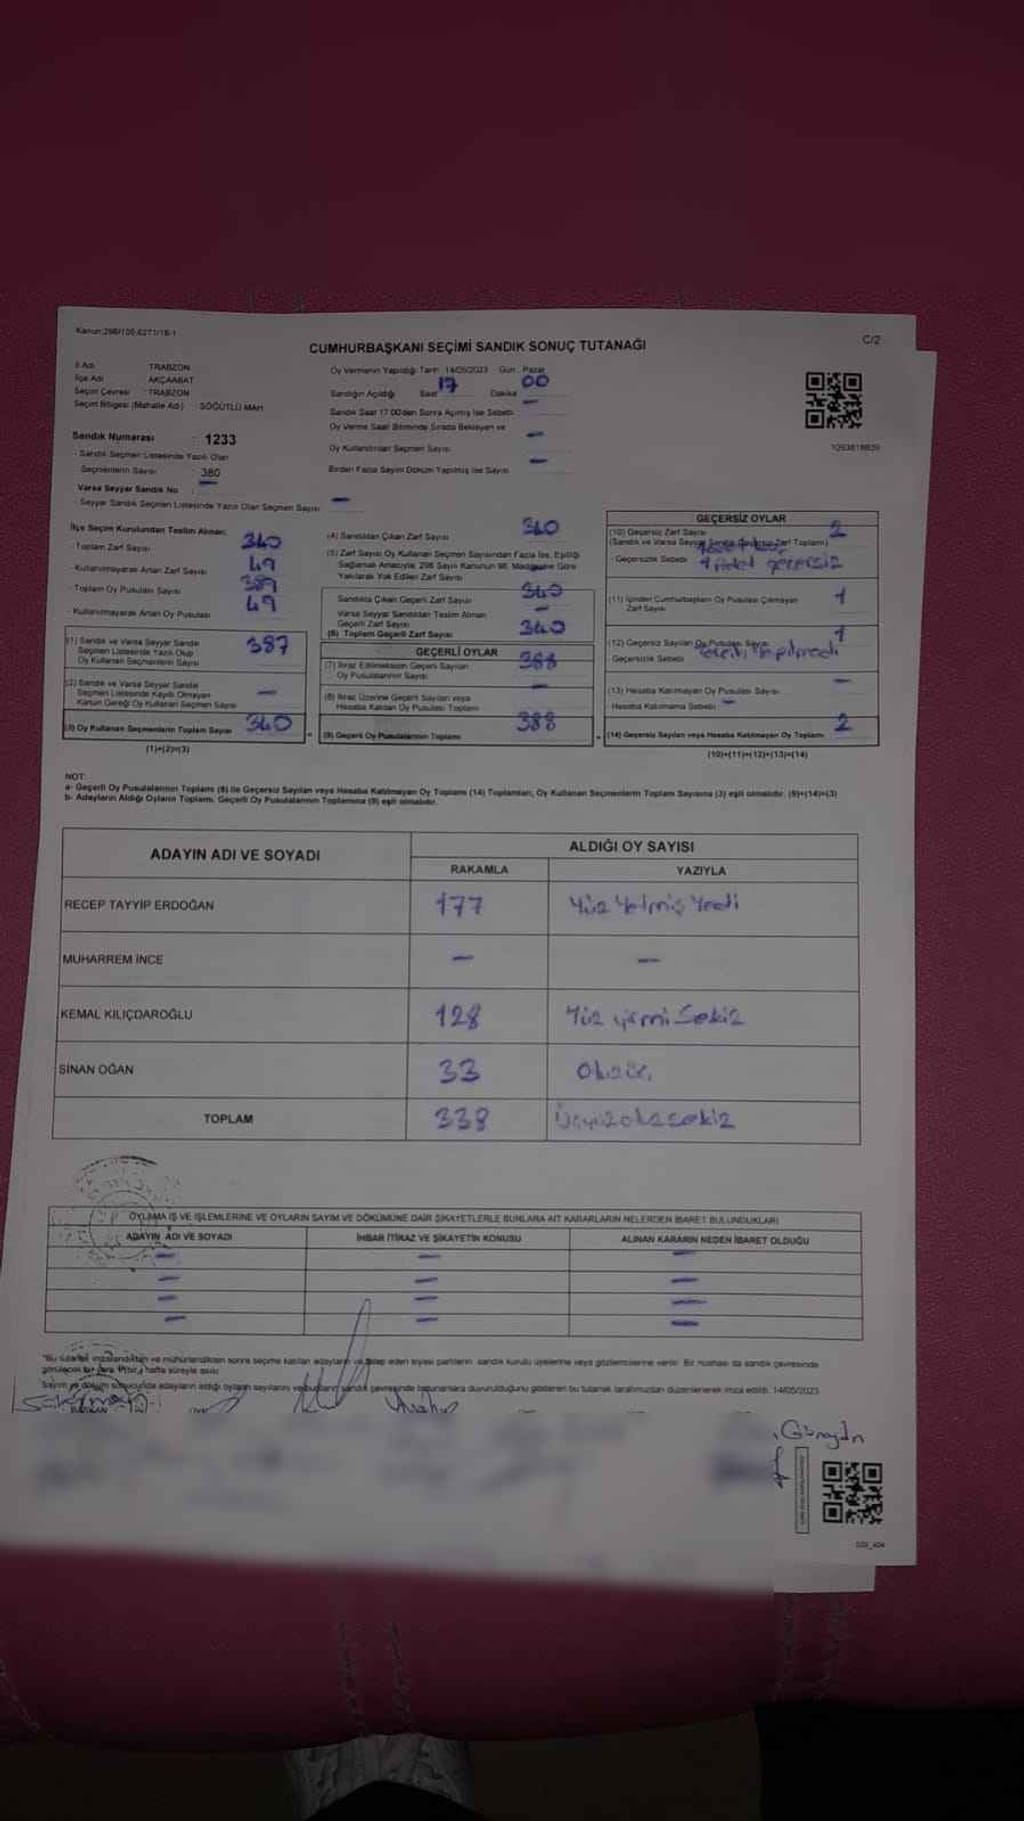 Kanun:298/105,6271/18-1
C/2
CUMHURBAŞKANI SEÇİMİ SANDIK SONUÇ TUTANAĞI
İl Adı TRABZON
İlçe Adı AKÇAABAT
Seçim Çevresi TRABZON
Seçim Bölgesi (Mahalle Adı) SÖĞÜTLÜ MAH
Sandık Numarası 1233
- Sandık Seçmen Listesinde Yazılı Olan
Seçmenlerin Sayısı 380
Varsa Seyyar Sandık No —
- Seyyar Sandık Seçmen Listesinde Yazılı Olan Seçmen Sayısı —
Oy Vermenin Yapıldığı Tarih 14/05/2023 Gün : Pazar
Sandığın Açıldığı Saat 17 Dakika 00
Sandık Saat 17.00'den Sonra Açılmış İse Sebebi —
Oy Verme Saati Bitiminde Sırada Bekleyen ve
Oy Kullandırılan Seçmen Sayısı —
Birden Fazla Sayım Döküm Yapılmış İse Sayısı —
İlçe Seçim Kurulundan Teslim Alınan:
- Toplam Zarf Sayısı 340
- Kullanılmayarak Artan Zarf Sayısı 49
- Toplam Oy Pusulası Sayısı 389
- Kullanılmayarak Artan Oy Pusulası 49
(1) Sandık ve Varsa Seyyar Sandık
Seçmen Listesinde Yazılı Olup
Oy Kullanan Seçmenlerin Sayısı 387
(2) Sandık ve Varsa Seyyar Sandık
Seçmen Listesinde Kayıtlı Olmayan
Kanun Gereği Oy Kullanan Seçmen Sayısı —
(3) Oy Kullanan Seçmenlerin Toplam Sayısı 340
(1)+(2)=(3)
(4) Sandıktan Çıkan Zarf Sayısı 340
(5) Zarf Sayısı Oy Kullanan Seçmen Sayısından Fazla İse, Eşitliği
Sağlamak Amacıyla; 298 Sayılı Kanunun 98. Maddesine Göre
Yakılarak Yok Edilen Zarf Sayısı
Sandıkta Çıkan Geçerli Zarf Sayısı 340
Varsa Seyyar Sandıktan Teslim Alınan
Geçerli Zarf Sayısı —
(6) Toplam Geçerli Zarf Sayısı 340
GEÇERLİ OYLAR
(7) İtiraz Edilmeksizin Geçerli Sayılan
Oy Pusulalarının Sayısı 388
(8) İtiraz Üzerine Geçerli Sayılan veya
Hesaba Katılan Oy Pusulası Toplamı —
(9) Geçerli Oy Pusulalarının Toplamı 388
GEÇERSİZ OYLAR
(10) Geçersiz Zarf Sayısı 2
(Sandık ve Varsa Seyyar Sandık Geçersiz Zarf Toplamı)
Geçersizlik Sebebi 1 Adet geçersiz
(11) İçinden Cumhurbaşkanı Oy Pusulası Çıkmayan
Zarf Sayısı 1
(12) Geçersiz Sayılan Oy Pusulası Sayısı 1
Geçersizlik Sebebi Yapılmadı
(13) Hesaba Katılmayan Oy Pusulası Sayısı —
Hesaba Katılmama Sebebi —
(14) Geçersiz Sayılan veya Hesaba Katılmayan Oy Toplamı 2
(10)+(11)+(12)+(13)=(14)
NOT:
a- Geçerli Oy Pusulalarının Toplamı (9) ile Geçersiz Sayılan veya Hesaba Katılmayan Oy Toplamı (14) Toplamları, Oy Kullanan Seçmenlerin Toplam Sayısına (3) eşit olmalıdır. (9)+(14)=(3)
b- Adayların Aldığı Oyların Toplamı, Geçerli Oy Pusulalarının Toplamına (9) eşit olmalıdır.
ADAYIN ADI VE SOYADI ALDIĞI OY SAYISI
RAKAMLA YAZIYLA
RECEP TAYYİP ERDOĞAN 177 Yüz Yetmiş Yedi
MUHARREM İNCE — —
KEMAL KILIÇDAROĞLU 128 Yüz yirmi Sekiz
SİNAN OĞAN 33 Otuzüç
TOPLAM 338 Üçyüzotuzsekiz
OYLAMA İŞ VE İŞLEMLERİNE VE OYLARIN SAYIM VE DÖKÜMÜNE DAİR ŞİKAYETLERLE BUNLARA AİT KARARLARIN NELERDEN İBARET BULUNDUKLARI
ADAYIN ADI VE SOYADI İHBAR İTİRAZ VE ŞİKAYETİN KONUSU ALINAN KARARIN NEDEN İBARET OLDUĞU
— — —
— — —
— — —
— — —
"Bu tutanak imzalandıktan ve mühürlendikten sonra seçime katılan adayların ve talep eden siyasi partilerin sandık kurulu üyelerine veya gözlemcilerine verilir. Bir nüshası da sandık çevresinde
görülecek bir yere 1 hafta süreyle asılır.
Sayım ve döküm sonucunda adayların aldığı oyların sayılarını ve bunların sandık çevresinde bulunanlara duyurulduğunu gösteren bu tutanak tarafımızdan düzenlenerek imza edildi. 14/05/2023
Süleyman
Günaydın